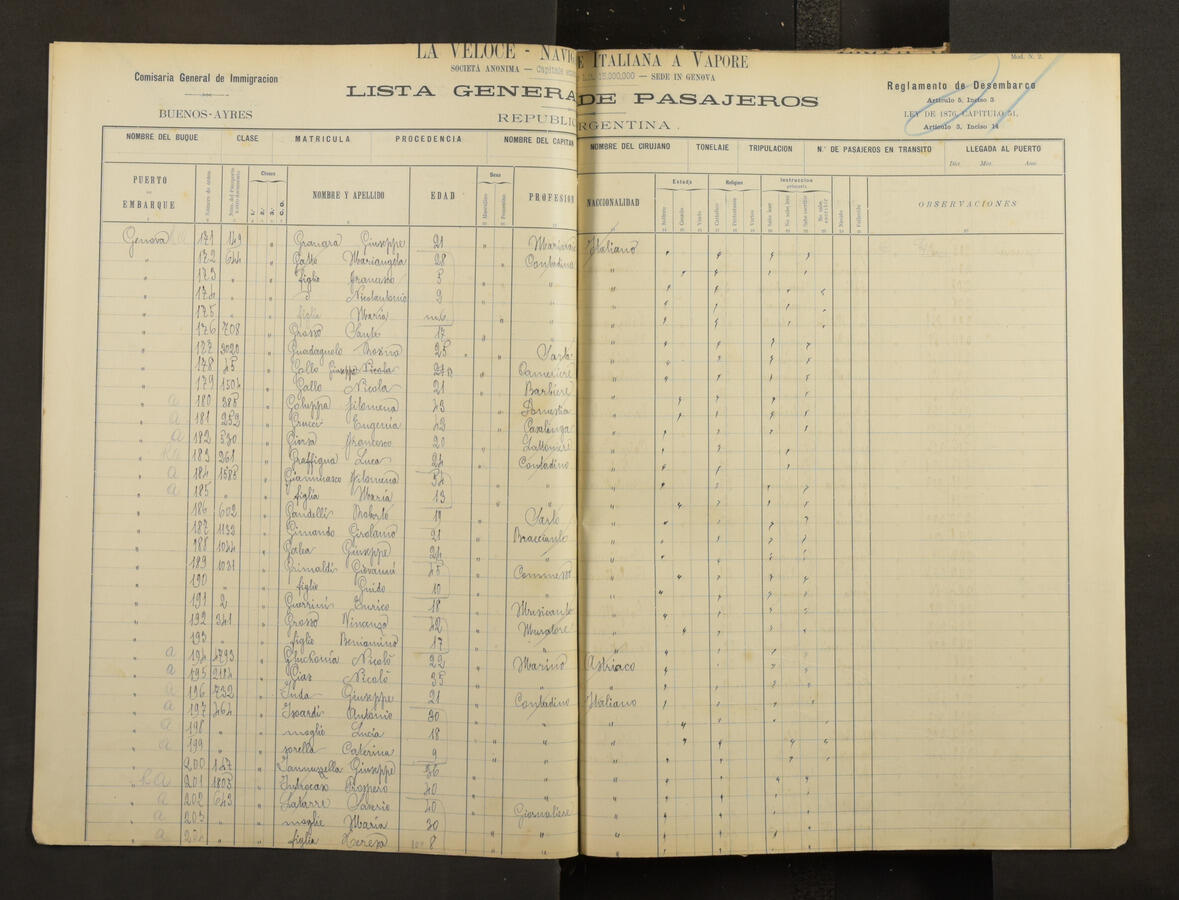 LA VELOCE - NAVIG E ITALIANA A VAPORE
SOCIETÀ ANONIMA — 15.000,000 — SEDE IN GENOVA
Mod. N. 2.
Comisaria General de Immigracion
BUENOS-AYRES
LISTA GENERA DE PASAJEROS
REPUBLI RGENTINA.
Reglamento de Desembarco
Articulo 5, Inciso 3
LEY DE 1876, CAPITULO 51,
Articulo 3, Inciso 14
NOMBRE DEL BUQUE CLASE MATRICULA PROCEDENCIA NOMBRE DEL CAPITAN NOMBRE DEL CIRUJANO TONELAJE TRIPULACION N.° DE PASAJEROS EN TRANSITO LLEGADA AL PUERTO
Dia. Mes. Ano.
PUERTO DE EMBARQUE Número de orden Clases 1.ª 2.ª 3.ª NOMBRE Y APELLIDO EDAD Sexo Masculino Femenino PROFESION NACCIONALIDAD Estado Soltero Casado Viudo Religion Catolica Protestante Varios Instruccion primaria Sabe leer No sabe leer Sabe escribir No sabe escribir Nacido Fallecido OBSERVACIONES
Genova 171 149 " Granara Giuseppe 21 " Italiano
" 172 644 " Gatto Mariangela 28 Contadina "
" 173 " " figlio Francesco 5 " "
" 174 " " Nicolantonio 9 " "
" 175 " " figlia Maria " "
" 176 708 " Grosso Sante 17 " "
" 177 3020 " Guadagnolo 25 " Sarto "
" 178 45 " Gallo Giuseppe Nicola " Cameriere "
" 179 1504 " Gallo Nicola 21 " Barbiere "
a 180 388 " Galuppa Filomena 43 " "
a 181 252 " Eugenia 42 " Casalinga "
a 182 530 " Francesco 20 " Lattoniere "
183 261 " Raffigna Luca 24 " Contadino "
a 184 1585 " Filomena 54 " "
a 185 " " figlia Maria 13 " "
" 186 602 " Gandelli Roberto 19 " Sarto "
" 187 1133 " Gimando Girolamo 21 " Bracciante "
" 188 1044 " Galea Giuseppe 24 " "
" 189 1031 " Grimaldi Giovanni 45 " Commesso "
" 190 " " figlio Guido 10 " "
" 191 2 " Guerrini Enrico 18 " Musicante "
" 192 341 " Grosso Vincenzo 42 " Muratore "
" 193 " " figlio Beniamino 17 " "
a 194 4793 " Nicolò 22 " Marino Astriaco
a 195 2184 " Nicolò 35 " " "
a 196 732 " Giuseppe 21 " Contadino Italiano
a 197 464 " Isoardi Antonio 30 " " "
a 198 " " moglie Lucia 18 " "
a 199 " " sorella Caterina 9 " "
" 200 147 " Iannuzzella Giuseppe 36 " "
a 201 1803 " Introcaso Prospero 40 " "
a 202 643 " Latarre Saverio 40 " Giornaliere "
a 203 " " moglie Maria 30 " "
a 204 " " figlia Teresa 8 " "